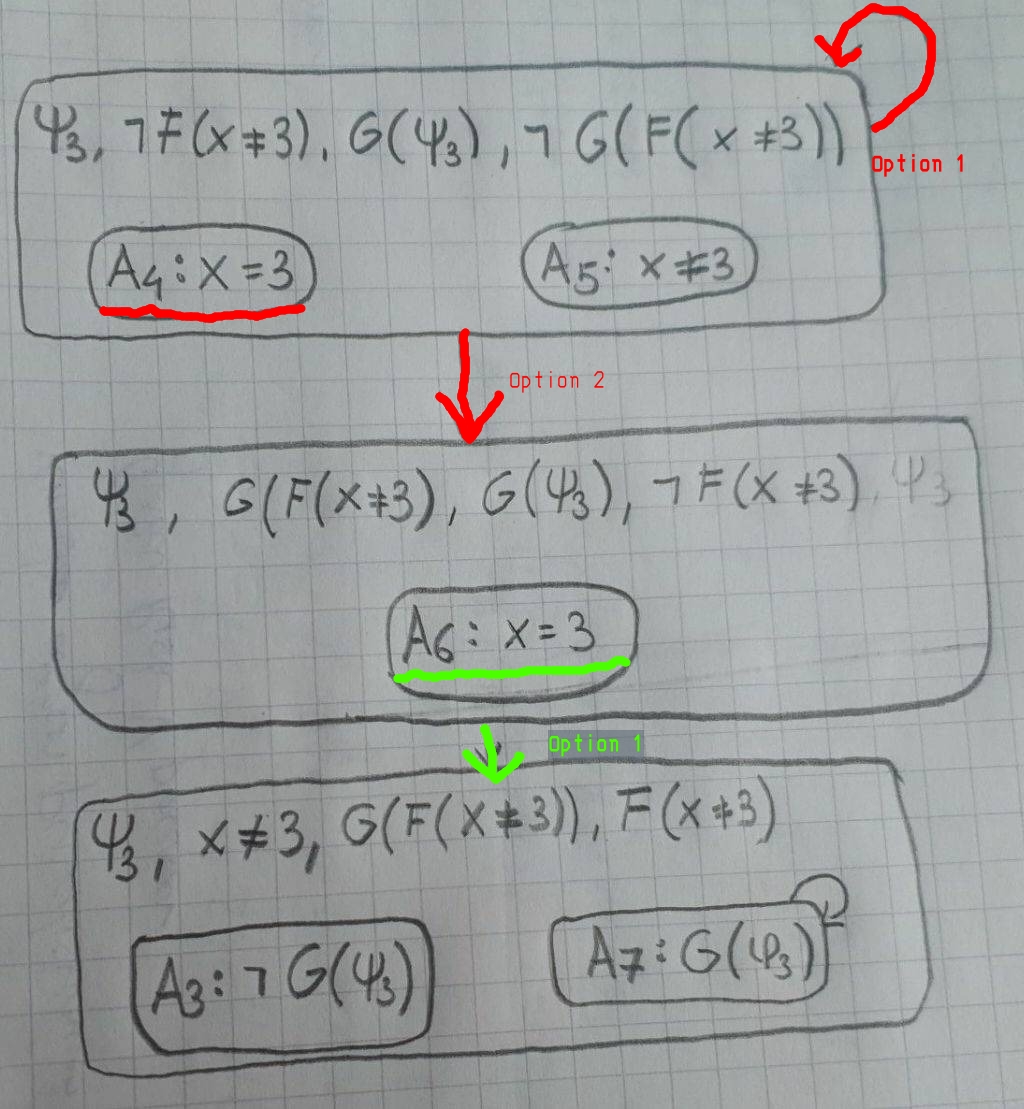 Ψ₃, ¬F(x≠3), G(Ψ₃), ¬G(F(x≠3))
Option 1
A₄: x=3 A₅: x≠3
Option 2
Ψ₃, G(F(x≠3), G(Ψ₃), ¬F(x≠3), Ψ₃
A₆: x=3
Option 1
Ψ₃, x≠3, G(F(x≠3)), F(x≠3)
A₃: ¬G(Ψ₃) A₇: G(Ψ₃)